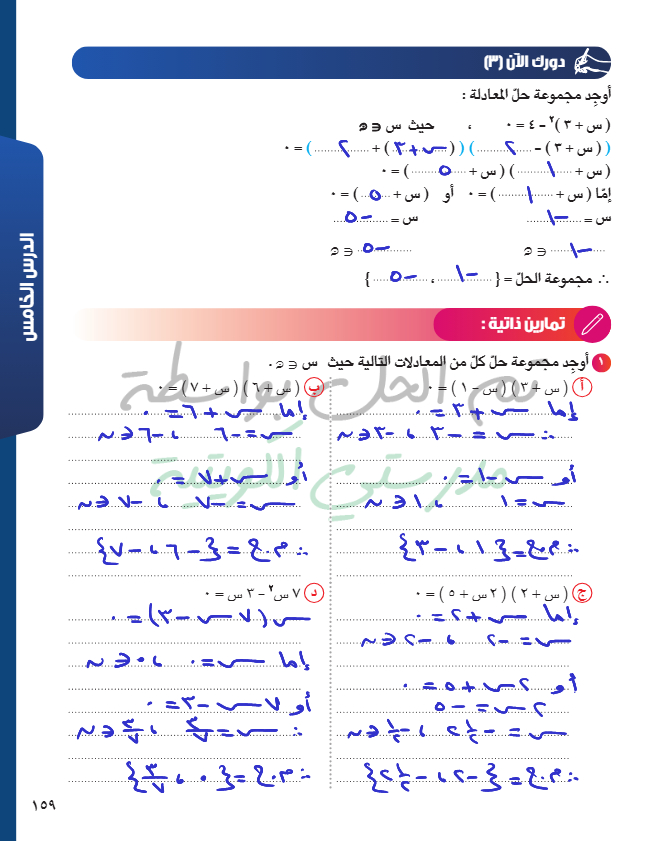 دورك الآن (٣)
أوجِد مجموعة حلّ المعادلة :
( س + ٣ )² - ٤ = ٠ ، حيث س ∈ ن
( ( س + ٣ ) - ٢ ) ( ( س + ٣ ) + ٢ ) = ٠
( س + ١ ) ( س + ٥ ) = ٠
إمّا ( س + ١ ) = ٠ أو ( س + ٥ ) = ٠
س = -١ س = -٥
-١ ∈ ن -٥ ∈ ن
∴ مجموعة الحلّ = { -١ ، -٥ }
تمارين ذاتية :
١ أوجِد مجموعة حلّ كلّ من المعادلات التالية حيث س ∈ ن .
أ ( س + ٣ ) ( س - ١ ) = ٠
إما س + ٣ = ٠
∴ س = -٣ ، -٣ ∈ ن
أو س - ١ = ٠
س = ١ ، ١ ∈ ن
∴ م.ح = { ١ ، -٣ }
ب ( س + ٦ ) ( س + ٧ ) = ٠
إما س + ٦ = ٠
س = -٦ ، -٦ ∈ ن
أو س + ٧ = ٠
س = -٧ ، -٧ ∈ ن
∴ م.ح = { -٦ ، -٧ }
ج ( س + ٢ ) ( ٢ س + ٥ ) = ٠
إما س + ٢ = ٠
س = -٢ ، -٢ ∈ ن
أو ٢ س + ٥ = ٠
٢ س = -٥
س = -٢ ١/٢ ، -٢ ١/٢ ∈ ن
∴ م.ح = { -٢ ، -٢ ١/٢ }
د ٧ س² - ٣ س = ٠
س ( ٧ س - ٣ ) = ٠
إما س = ٠ ، ٠ ∈ ن
أو ٧ س - ٣ = ٠
∴ س = ٣/٧ ، ٣/٧ ∈ ن
∴ م.ح = { ٠ ، ٣/٧ }
تم الحل بواسطة
مدرستي الكويتية
الدرس الخامس
١٥٩